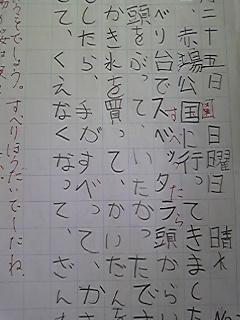 月二十五日 日曜日 晴れ
赤場公国に行ってきました
園
べり台でスベッタラ頭からい
すべったら
頭をぶって、いたかったでさ
かき氷を買って、かいだん
したら、手がすべって、かき
して、くえなくなって、ざん
でしょう。すべりほうだいで〜したね。